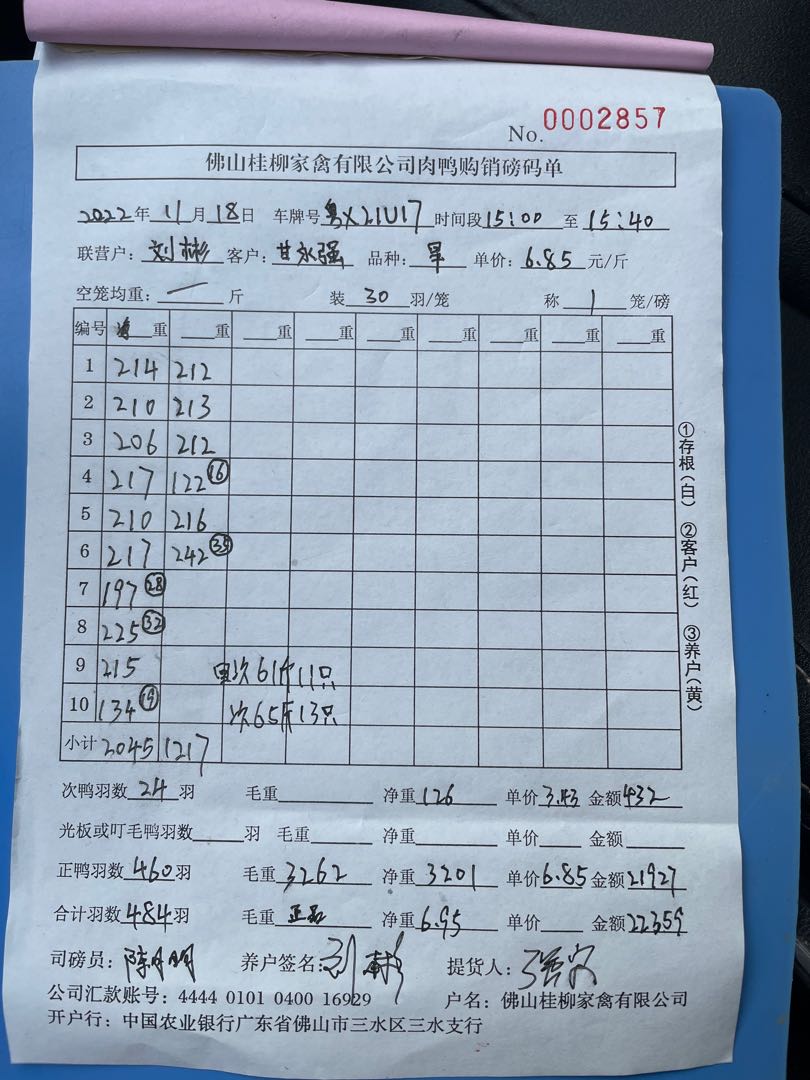 No. 0002857
佛山桂柳家禽有限公司肉鸭购销磅码单
2022年 11月 18日 车牌号 粤X21U17 时间段 15:00 至 15:40
联营户: 刘彬 客户: 甘永强 品种: 旱 单价: 6.85 元/斤
空笼均重: 一 斤 装 30 羽/笼 称 1 笼/磅
编号 重 重 重 重 重 重 重 重
1 214 212
2 210 213
3 206 212
4 217 122 16
5 210 216
6 217 242 35
7 197 28
8 225 32
9 215 次61斤11只
10 134 19 次65斤13只
小计 2045 1217
次鸭羽数 24 羽 毛重 净重 126 单价 3.43 金额 432
光板或叮毛鸭羽数 羽 毛重 净重 单价 金额
正鸭羽数 460 羽 毛重 3262 净重 3201 单价 6.85 金额 21927
合计羽数 484 羽 毛重 正品 净重 6.95 单价 金额 22359
司磅员: 陈月明 养户签名: 刘彬 提货人:
公司汇款账号: 4444 0101 0400 16929 户名: 佛山桂柳家禽有限公司
开户行: 中国农业银行广东省佛山市三水区三水支行
①存根(白) ②客户(红) ③养户(黄)